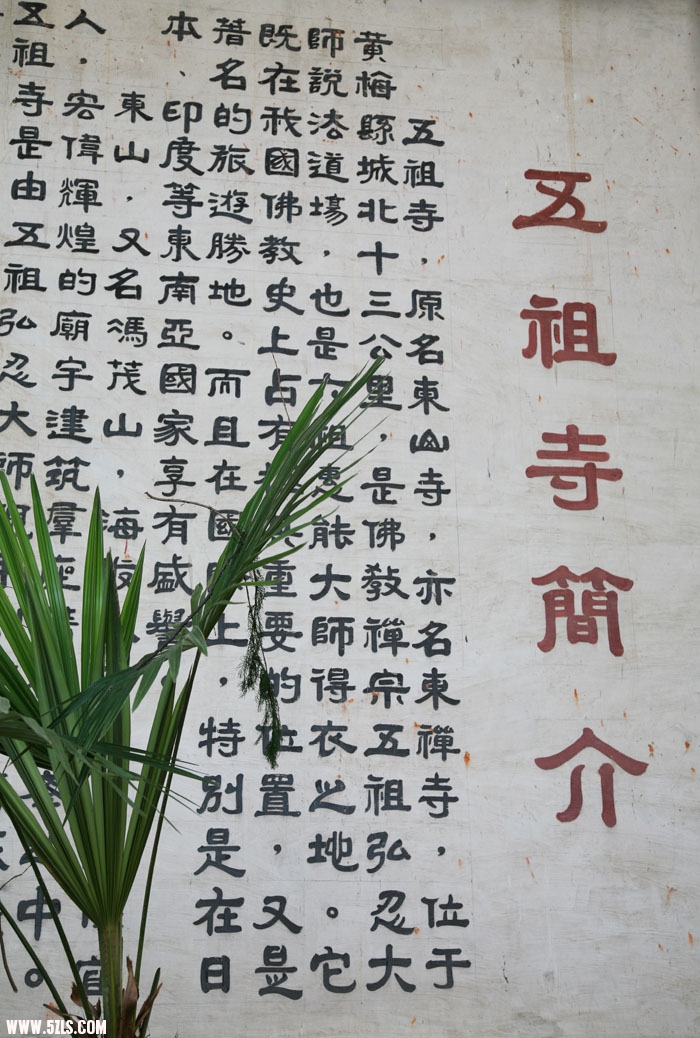 五祖寺簡介
五祖寺，原名東山寺，亦名東禪寺，位于
黄梅縣城北十三公里，是佛教禪宗五祖弘忍大
師説法道場，也是六祖惠能大師得衣之地。它
既在我國佛教史上占有重要的位置，又是
著名的旅遊勝地。而且在國際上，特別是在日
本、印度等東南亞國家享有盛譽。
東山，又名馮茂山，海拔
人。宏偉輝煌的廟宇建筑羣座
五祖寺是由五祖弘忍大師中。
WWW.5ZLS.COM